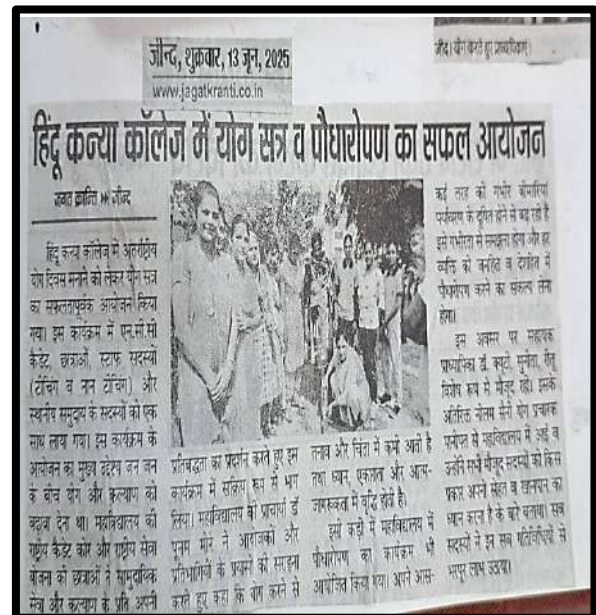 जीन्द, शुक्रवार, 13 जून, 2025
www.jagatkranti.co.in
जींद। योग करते हुए प्राध्यापिकाएं।
हिंदू कन्या कॉलेज में योग सत्र व पौधारोपण का सफल आयोजन
जगत क्रान्ति ›› जीन्द
हिंदू कन्या कॉलेज में अंतर्राष्ट्रीय
योग दिवस मनाने को लेकर योग सत्र
का सफलतापूर्वक आयोजन किया
गया। इस कार्यक्रम में एन.सी.सी
कैडेट, छात्राओं, स्टाफ सदस्यों
(टीचिंग व नान टीचिंग) और
स्थानीय समुदाय के सदस्यों को एक
साथ लाया गया। इस कार्यक्रम के
आयोजन का मुख्य उद्देश्य जन जन
के बीच योग और कल्याण को
बढ़ावा देना था। महाविद्यालय की
राष्ट्रीय कैडेट कोर और राष्ट्रीय सेवा
योजना की छात्राओं ने सामुदायिक
सेवा और कल्याण के प्रति अपनी
प्रतिबद्धता का प्रदर्शन करते हुए इस
कार्यक्रम में सक्रिय रूप से भाग
लिया। महाविद्यालय की प्राचार्या डॉ
पूनम मोर ने आयोजकों और
प्रतिभागियों के प्रयासों की सराहना
करते हुए कहा कि योग करने से
तनाव और चिंता में कमी आती है
तथा ध्यान, एकाग्रता और आत्म-
जागरूकता में वृद्धि होती है।
इसी कड़ी में महाविद्यालय में
पौधारोपण का कार्यक्रम भी
आयोजित किया गया। अपने आस-
कई तरह की गंभीर बीमारियां
पर्यावरण के दूषित होने से बढ़ रही है
इसे गंभीरता से समझना होगा और हर
व्यक्ति को जनहित व देशहित में
पौधारोपण करने का संकल्प लेना
होगा।
इस अवसर पर सहायक
प्राध्यापिका डॉ. सुनीता, रीतू
विशेष रूप से मौजूद रही। इसके
अतिरिक्त नीलम सैनी योग प्रचारक
पानीपत से महाविद्यालय में आई व
उन्होंने सभी मौजूद सदस्यों को किस
प्रकार अपनी सेहत व खानपान का
ध्यान करना है के बारे बताया। सब
सदस्यों ने इन सब गतिविधियों से
भरपूर लाभ उठाया।